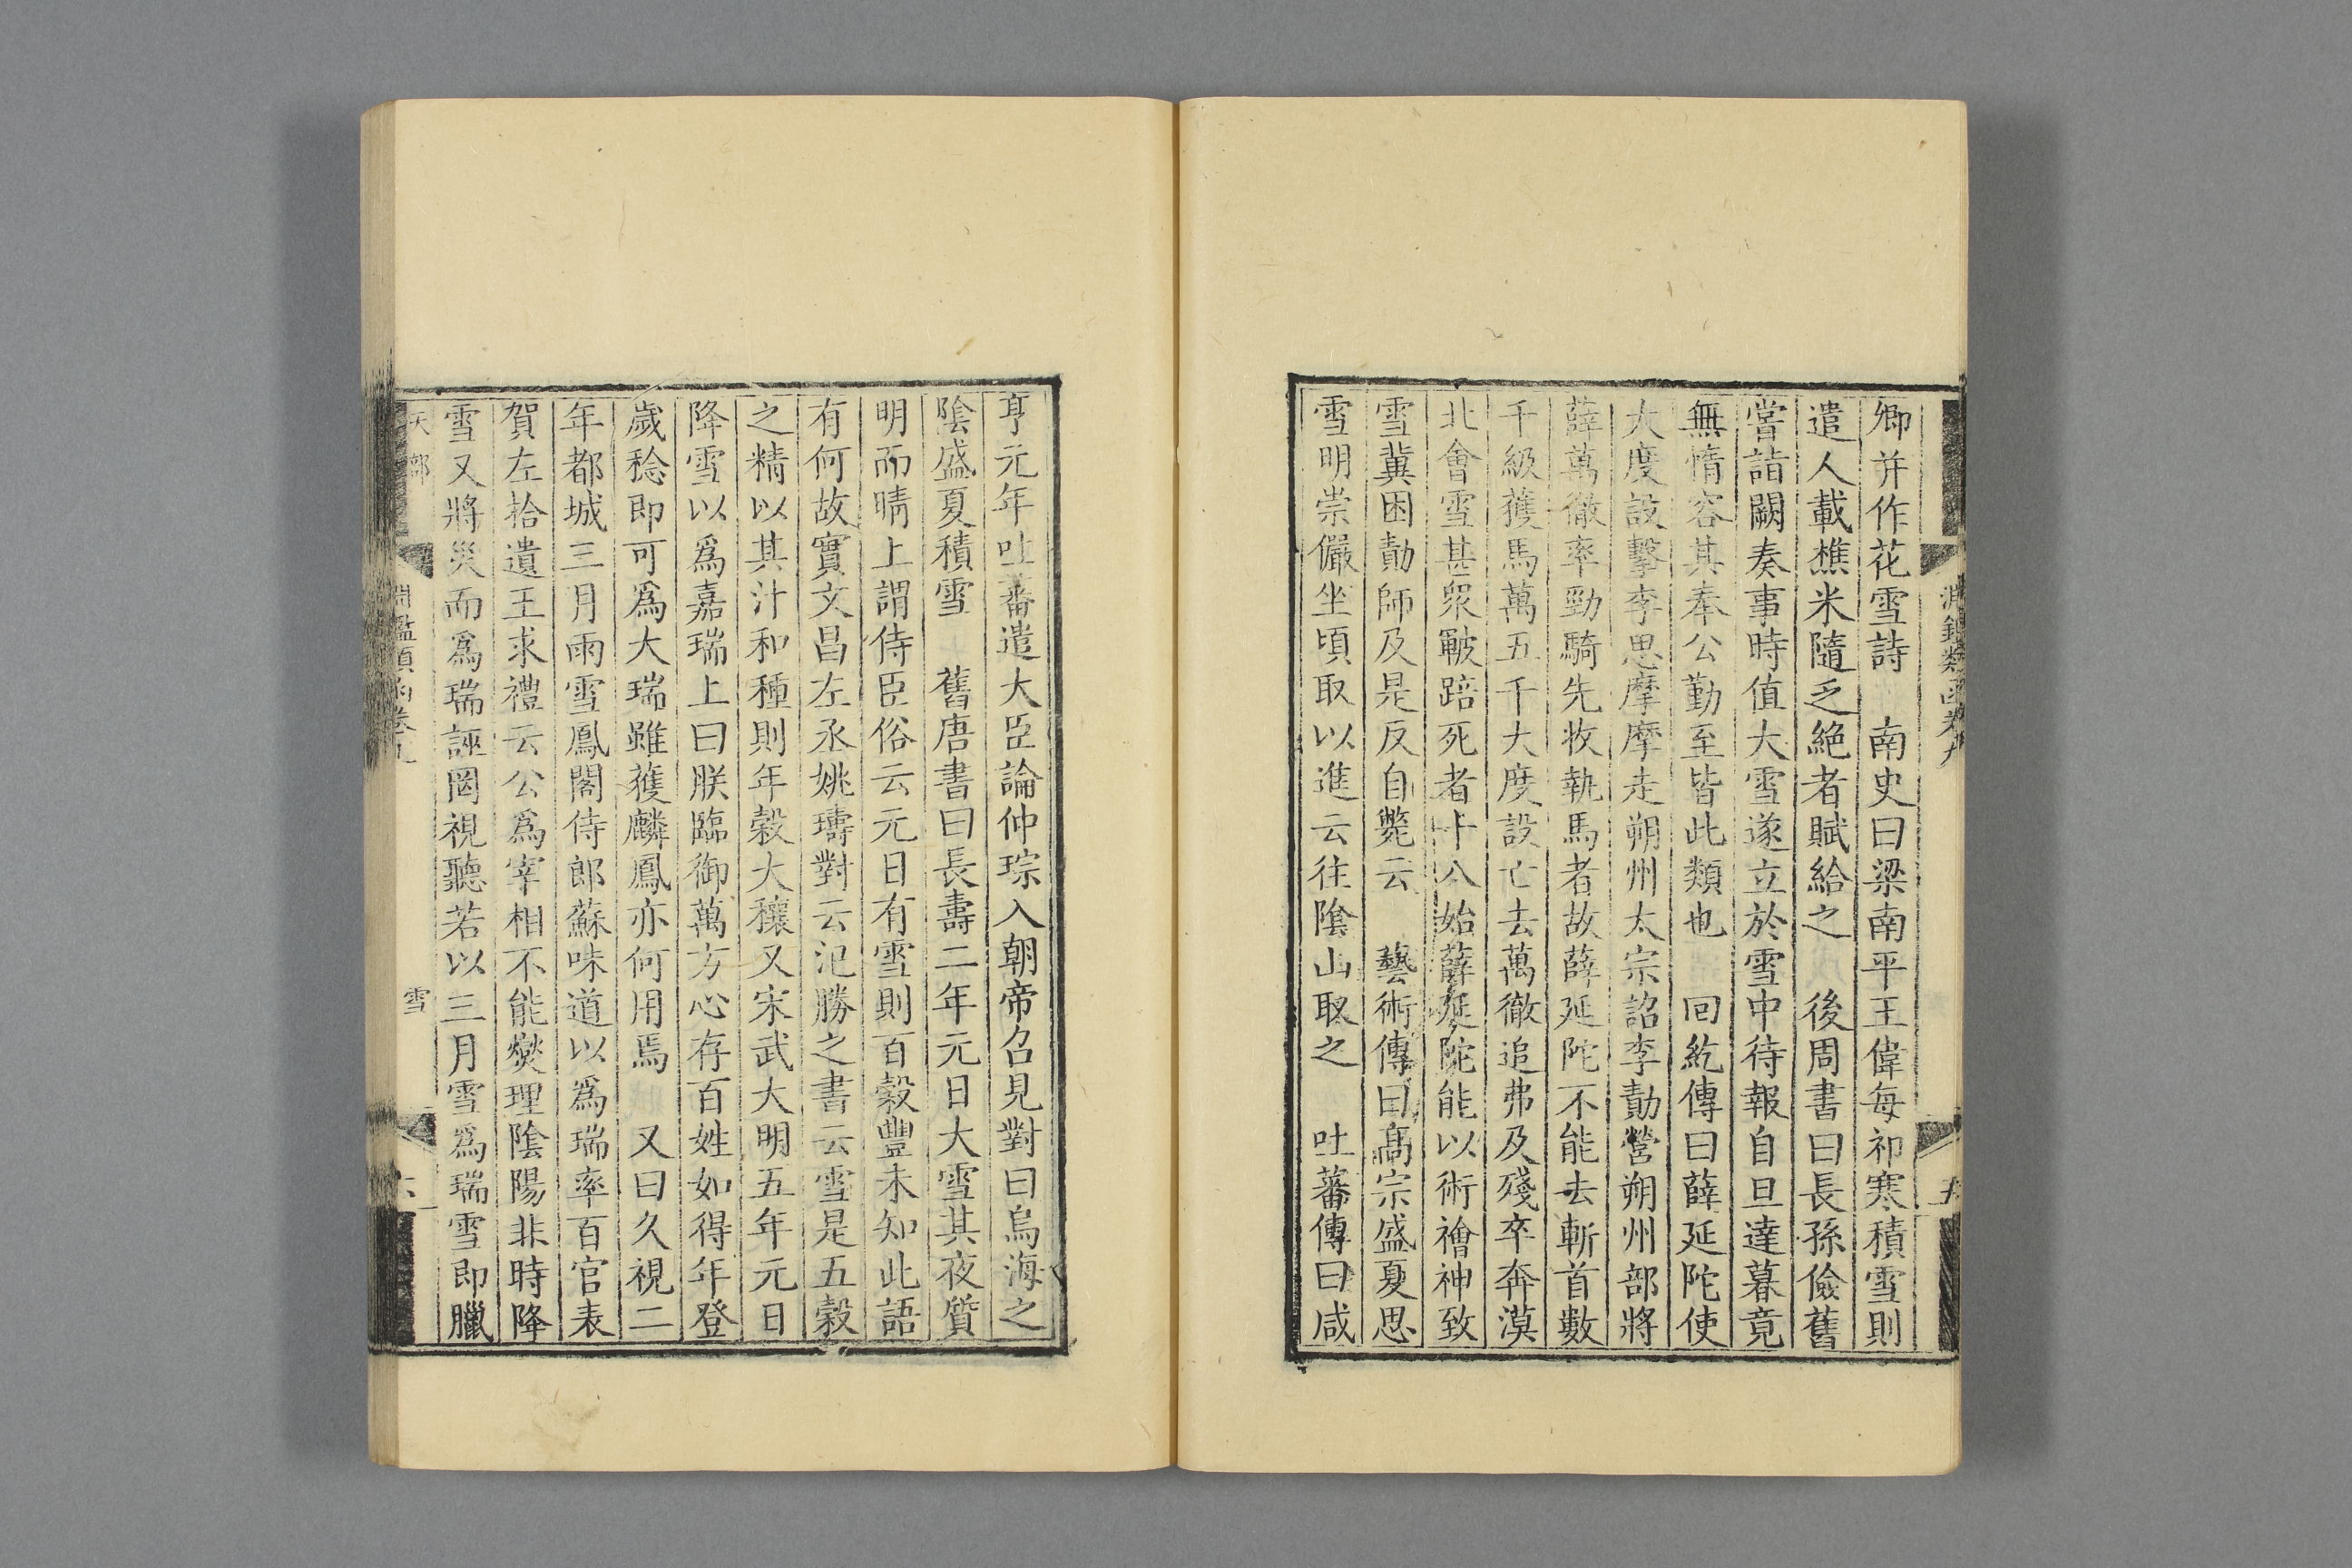 淵鑑類函卷九
五
卿并作花雪詩　南史曰梁南平王偉每祁寒積雪則
遣人載樵米隨乏絕者賦給之　後周書曰長孫儉舊
嘗詣闕奏事時值大雪遂立於雪中待報自旦達暮竟
無惰容其奉公勤至皆此類也　回紇傳曰薛延陀使
大度設擊李思摩摩走朔州太宗詔李勣營朔州部將
薛萬徹率勁騎先收執馬者故薛延陀不能去斬首數
千級獲馬萬五千大度設亡去萬徹追弗及殘卒奔漠
北會雪甚衆皸踣死者十八始薛延陀能以術禬神致
雪冀困勣師及是反自斃云　藝術傳曰高宗盛夏思
雪明崇儼坐頃取以進云往陰山取之　吐蕃傳曰咸
亨元年吐蕃遣大臣論仲琮入朝帝召見對曰烏海之
陰盛夏積雪　舊唐書曰長壽二年元日大雪其夜質
明而晴上謂侍臣俗云元日有雪則百穀豐未知此語
有何故實文昌左丞姚璹對云氾勝之書云雪是五穀
之精以其汁和種則年穀大穰又宋武大明五年元日
降雪以爲嘉瑞上曰朕臨御萬方心存百姓如得年登
歲稔即可爲大瑞雖獲麟鳳亦何用焉　又曰久視二
年都城三月雨雪鳳閣侍郎蘇味道以爲瑞率百官表
賀左拾遺王求禮云公爲宰相不能爕理陰陽非時降
雪又將災而爲瑞誣罔視聽若以三月雪爲瑞雪即臘
天部　淵鑑類函卷九　雪　六